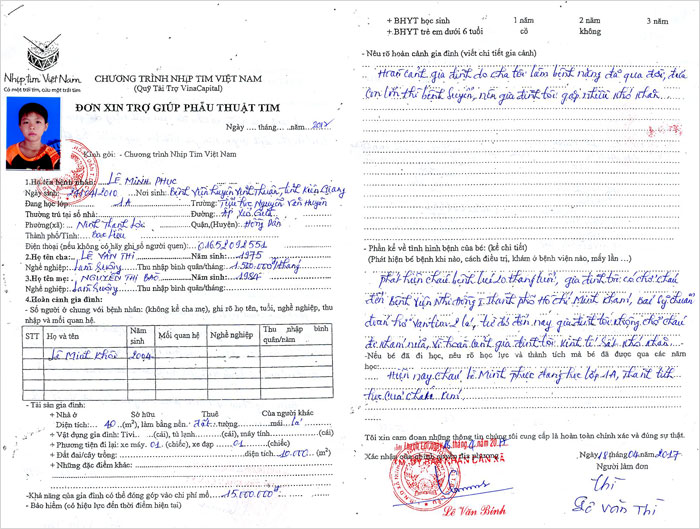 Nhịp tim Việt Nam
Có một trái tim, cứu một trái tim
CHƯƠNG TRÌNH NHỊP TIM VIỆT NAM
(Quỹ Tài Trợ VinaCapital)
ĐƠN XIN TRỢ GIÚP PHẪU THUẬT TIM
Ngày .... tháng.... ..năm...2017
Kính gởi: - Chương trình Nhịp Tim Việt Nam
1.Họ tên bệnh nhân: LÊ MINH PHỤC
Ngày sinh: 2010 Nơi sinh: Bệnh viện huyện Vĩnh Thuận, tỉnh Kiên Giang
Đang học lớp 1A Trường: Tiểu học Nguyễn Văn Huyên
Thường trú tại số nhà: Đường: Ấp
Phường(xã): Ninh Thạnh Lợi Quận,(Huyện): Hồng Dân
Thành phố/Tỉnh: Bạc Liêu
Điện thoại (nếu không có hãy ghi số người quen): 01652092551
2.Họ tên cha: LÊ VĂN THI Năm sinh: 1975
Nghề nghiệp: Làm ruộng Thu nhập bình quân/tháng: 1.500.000đ/tháng
3.Họ tên mẹ: NGUYỄN THỊ BAO Năm sinh: 1984
Nghề nghiệp: Làm ruộng Thu nhập bình quân/tháng:
4.Hoàn cảnh gia đình:
- Số người ở chung với bệnh nhân: (không kể cha mẹ), ghi rõ họ tên, tuổi, nghề nghiệp, thu
nhập và mối quan hệ.
STT Họ và tên Năm sinh Mối quan hệ Nghề nghiệp Thu nhập bình quân/năm
Lê Minh Khôi 2004
- Tài sản gia đình:
+ Nhà ở Sở hữu Thuê Của người khác
Diện tích: 40 (m2), làm bằng nền: đất tường mái lá
+ Vật dụng gia đình: Tivi (cái), tủ lạnh (cái), máy tính (cái)
+ Phương tiện đi lại: xe máy. 01 (chiếc), xe đạp 01 (chiếc)
+ Đất đai/cây trồng: diện tích 10.000 (m2)
+ Những đặc điểm khác:
-Khả năng của gia đình có thể đóng góp vào chi phí mổ 15.000.000đ
- Bảo hiểm (có hiệu lực đến thời điểm hiện tại)
+ BHYT học sinh 1 năm 2 năm 3 năm
+ BHYT trẻ em dưới 6 tuổi có không
- Nêu rõ hoàn cảnh gia đình (viết chi tiết gia cảnh)
Hoàn cảnh gia đình do cha tôi lâm bệnh nặng đã qua đời, đứa
con lớn thì bệnh suyễn, nên gia đình tôi gặp nhiều khó khăn
- Phần kể về tình hình bệnh của bé: (kể chi tiết)
(Phát hiện bé bệnh khi nào, cách điều trị, khám ở bệnh viện nào, mấy lần ...)
phát hiện cháu bệnh lúc 10 tháng tuổi, gia đình tôi có chở cháu
đến Bệnh viện Nhi Đồng 1 Thành phố Hồ Chí Minh khám, Bác sỹ chuẩn
đoán hở van tim 2 lá, từ đó đến nay gia đình tôi không chở cháu
đi khám nữa, vì hoàn cảnh gia đình tôi kinh tế khó khăn
-Nếu bé đã đi học, nêu rõ học lực và thành tích mà bé đã được qua các năm
học:
Hiện nay cháu Lê Minh Phục đang học lớp 1A, thành tích
học của cháu
Tôi xin cam đoan những thông tin chúng tôi cung cấp là hoàn toàn chính xác và đúng sự thật.
Xác nhận của chính quyền địa phương
Ngày 18 tháng 04 năm 2017
TM. ỦY BAN NHÂN DÂN XÃ
Người làm đơn
Thi
Lê Văn Bính
Lê Văn Thi